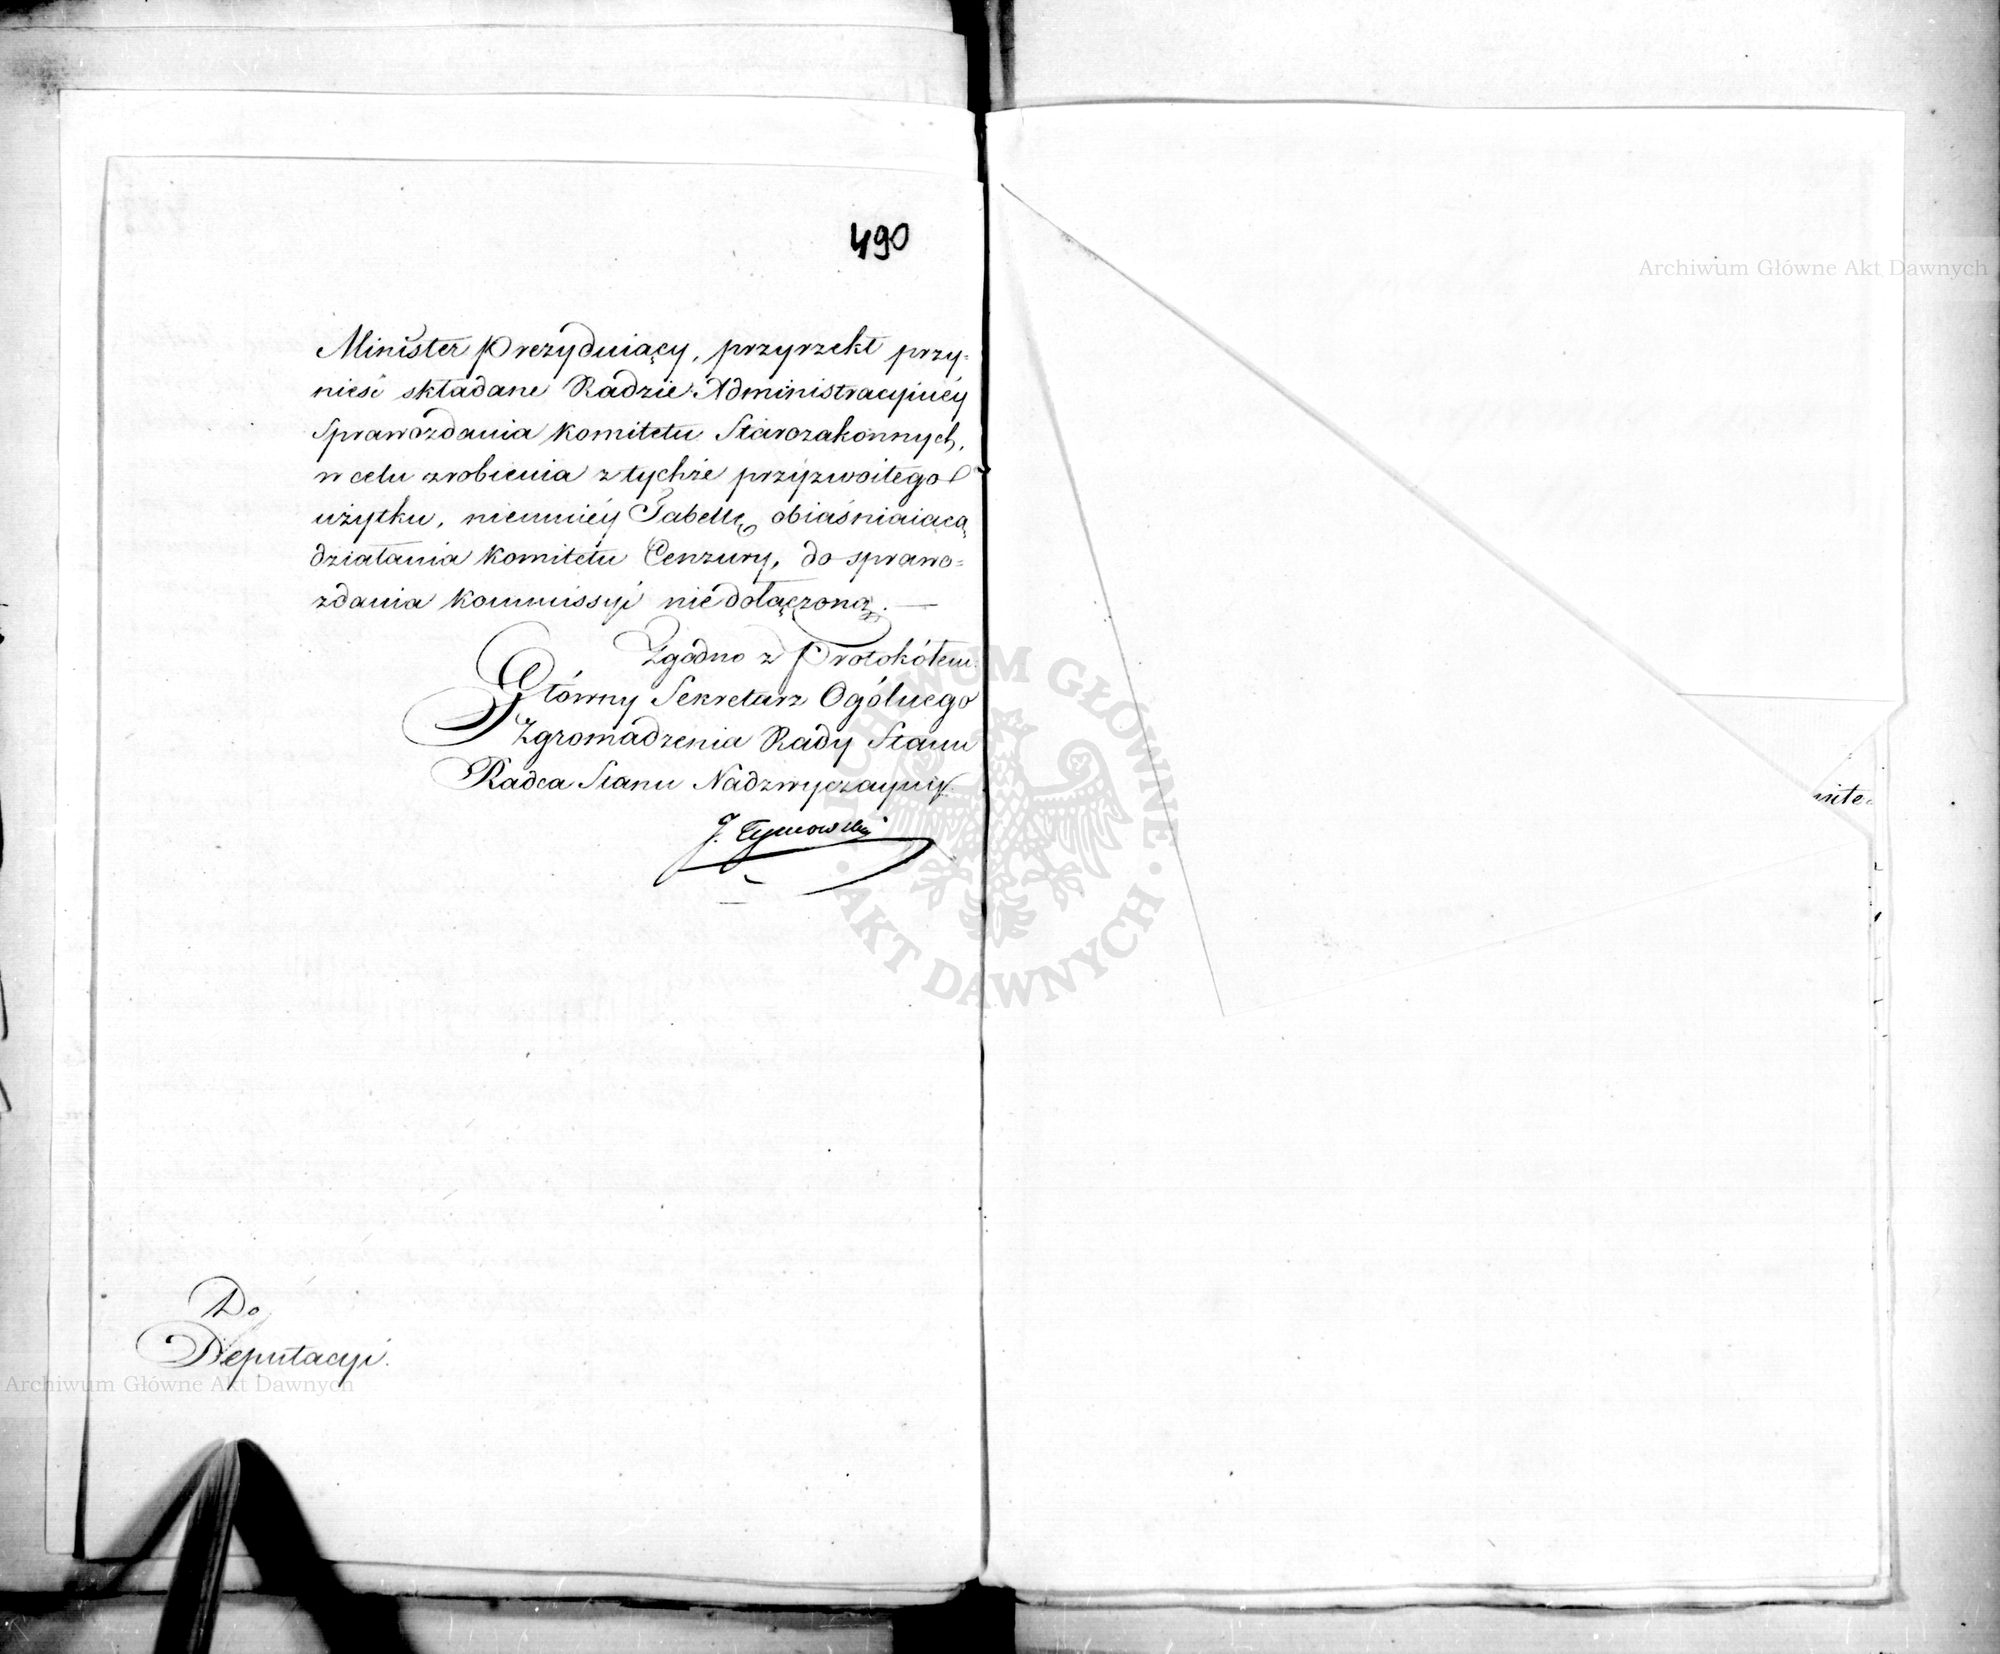 490
Minister Prezyduiący, przyrzekł przy=
nieść składane Radzie Administracyinéy
Sprawozdania Komitetu Starozakonnych,
w celu zrobienia z tychże przyzwoitego
użytku, niemniéy Tabellę obiaśniaiącą
działania Komitetu Cenzury, do sprawo=
zdania Kommissyi niedołączoną. —
Zgodno z Protokółem
Główny Sekretarz Ogólnego
Zgromadzenia Rady Stanu
Radca Stanu Nadzwyczayny.
J. Tymowski
Do
Deputacyi.
Archiwum Główne Akt Dawnych
Archiwum Główne Akt Dawnych
ARCHIWUM GŁÓWNE · AKT DAWNYCH ·